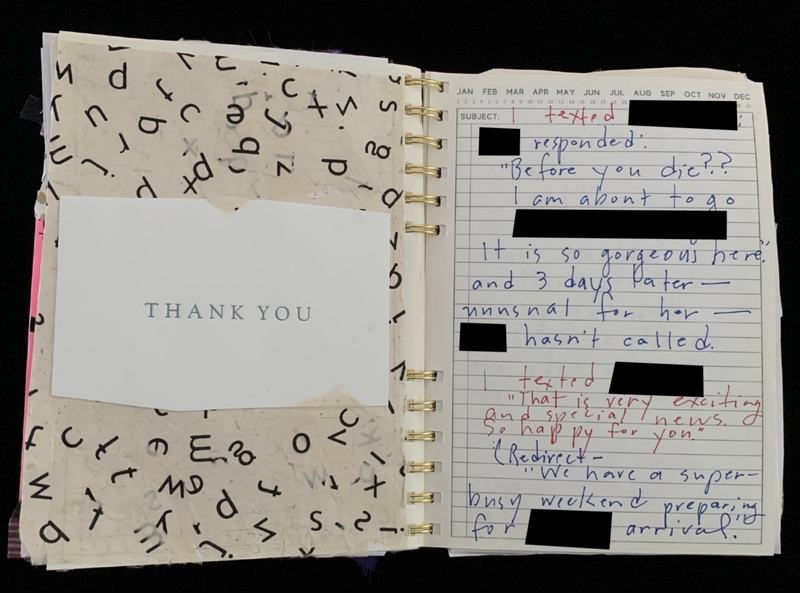 THANK YOU
JAN FEB MAR APR MAY JUN JUL AUG SEP OCT NOV DEC
SUBJECT: I texted :
responded:
"Before you die??
I am about to go
It is so gorgeous here."
and 3 days later —
unusual for her —
hasn't called.
I texted
"That is very exciting
and special news.
So happy for you."
(Redirect —
"We have a super-
busy weekend preparing
for arrival."